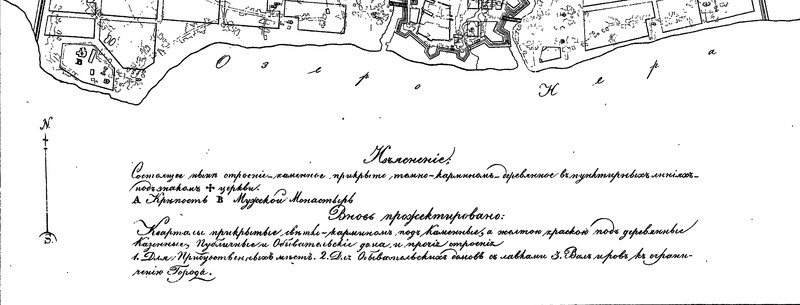 Озеро Нера
N.
S.
Изъясненіе:
Состоящее нынѣ строеніе каменное прикрыто темно-карминомъ деревянное въ пунктирныхъ линіяхъ
подъ знакомъ ✝ церкви.
А Крѣпость В Мужской Монастырь
Вновь прожектировано:
Кварталы прикрытые, свѣтло-карминомъ подъ Каменные, а желтою краскою подъ деревянные
Казенные, Публичные и Обывательскіе дома, и прочіе строенія
1. Для Присутственныхъ мѣстъ. 2. Для Обывательскихъ домовъ съ лавками 3. Валъ и ровъ къ ограни-
ченію Города.